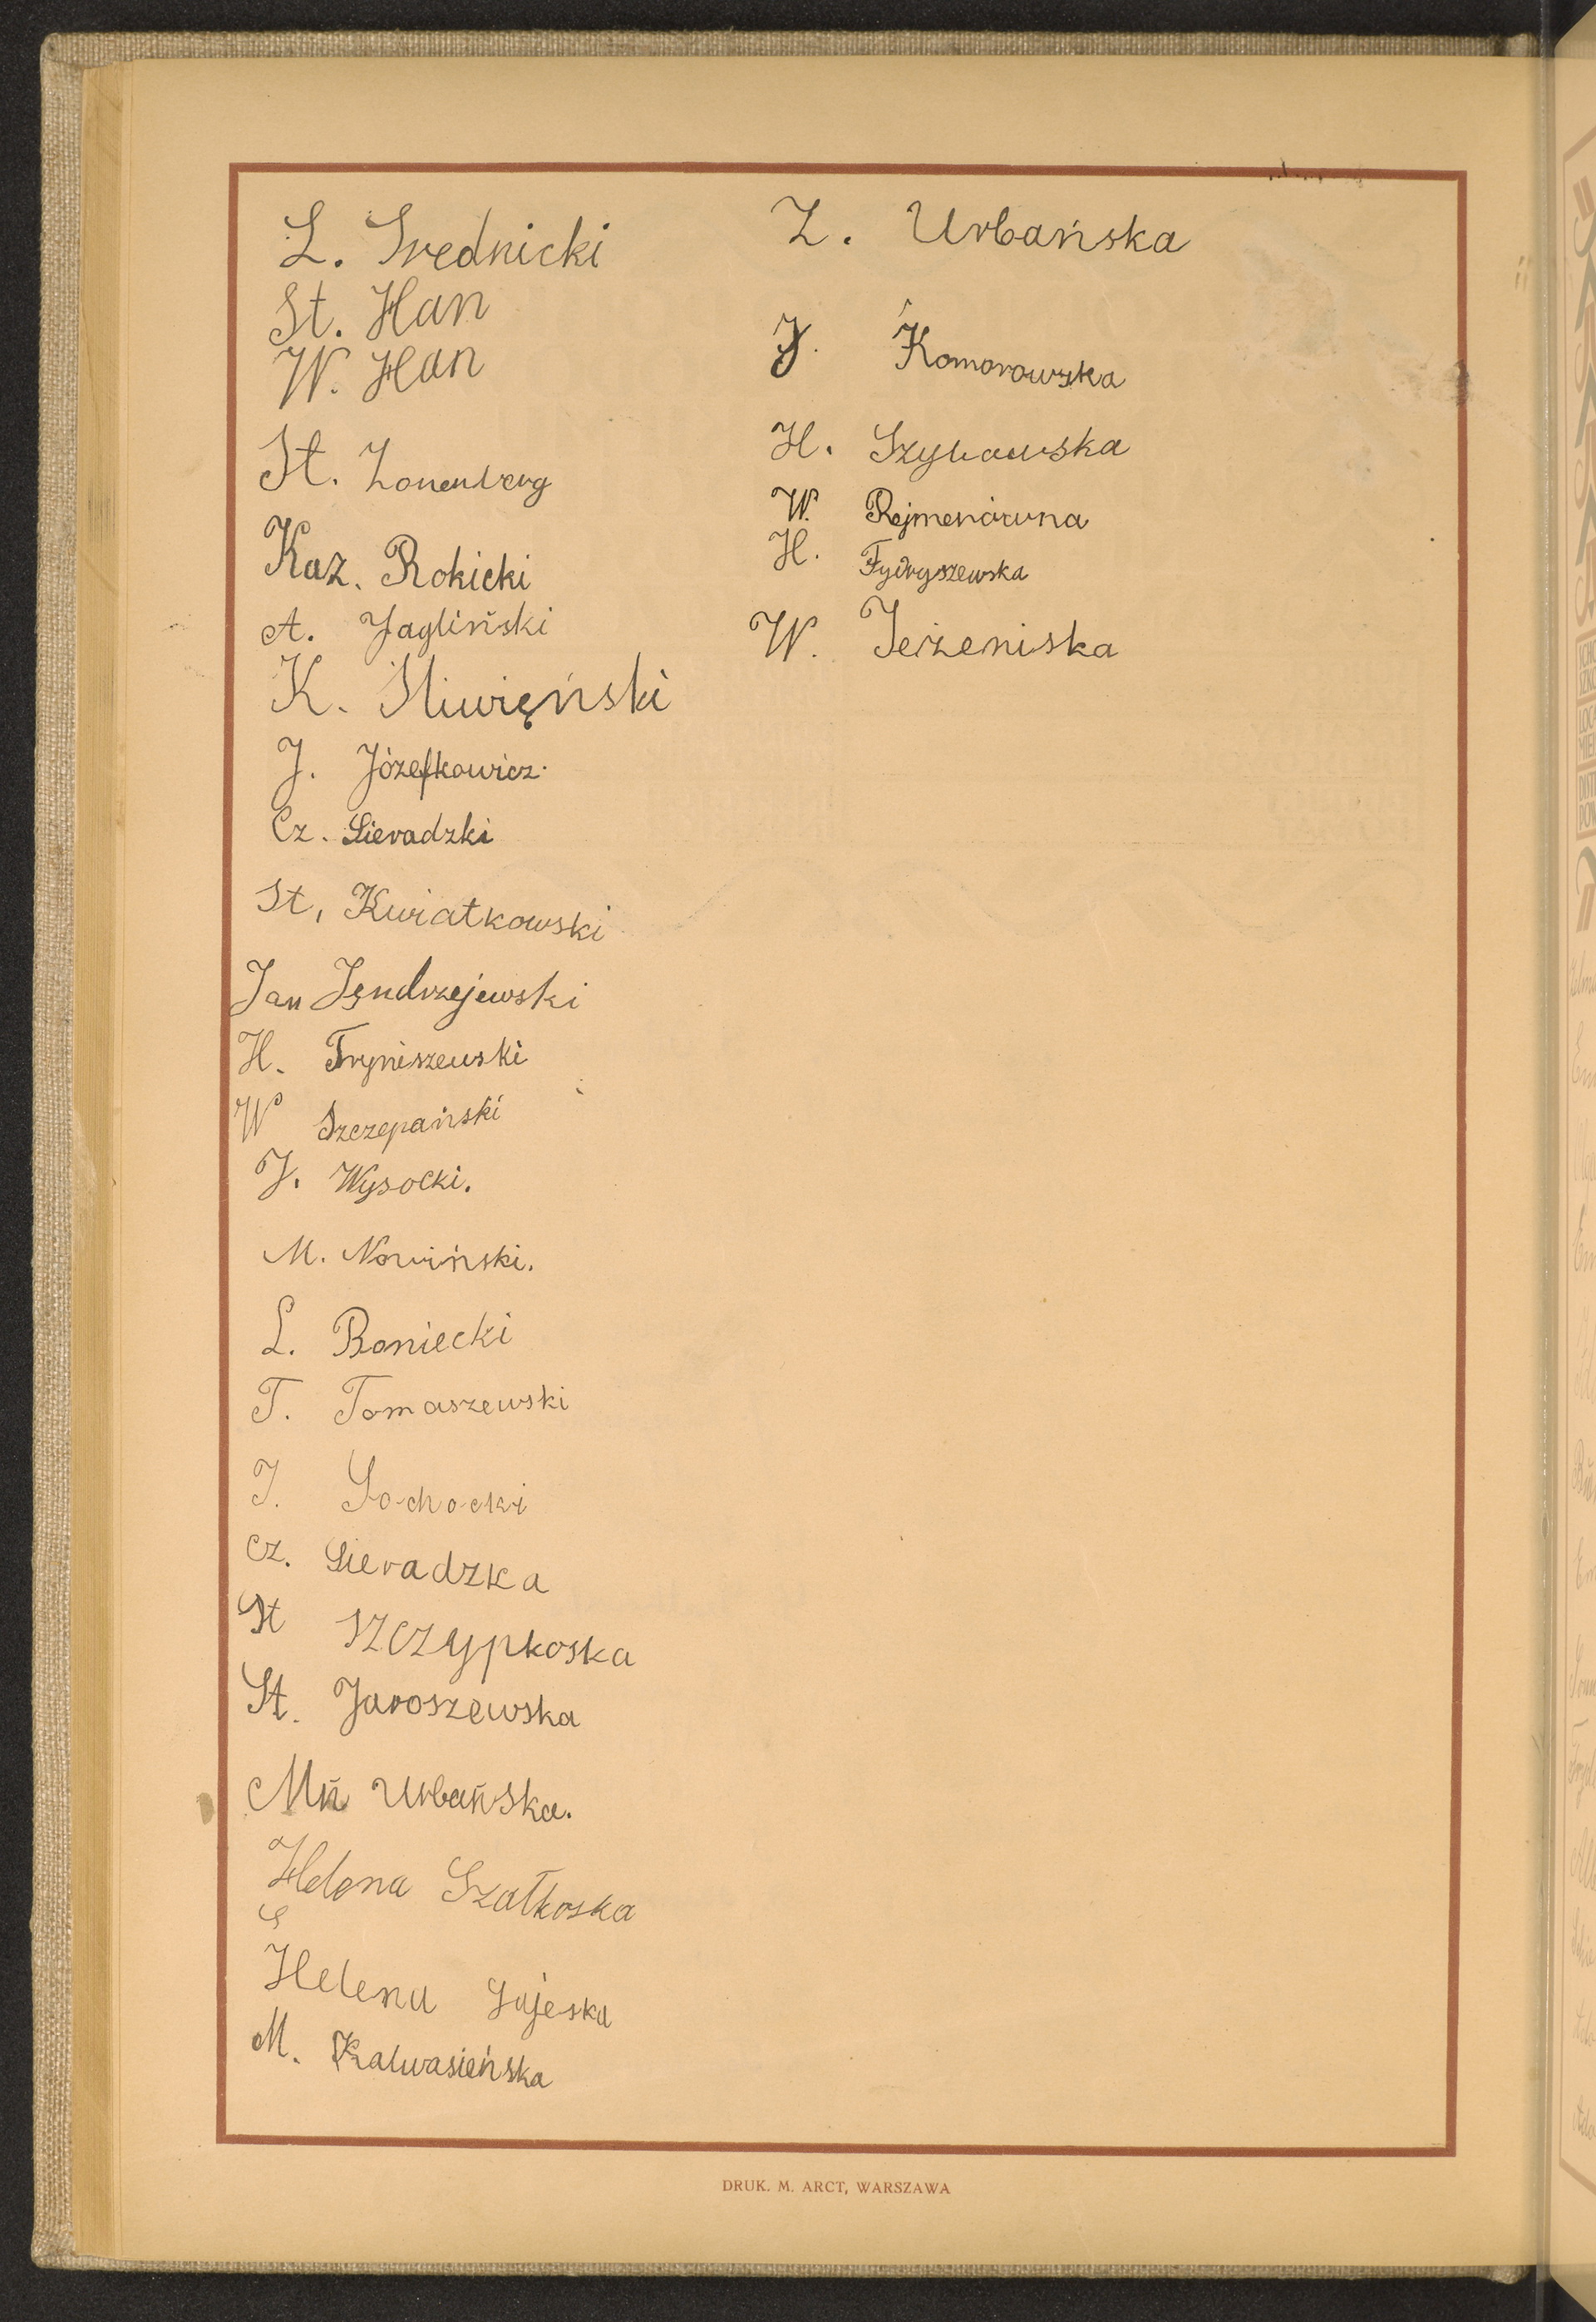 L. Srednicki
St. Han
W. Han
St. Zonenberg
Kaz. Rokicki
A. Jagliński
K. Sliwięński
J. Józefkowicz.
Cz. Sieradzki
St, Kwiatkowski
Jan Jęndrzejewski
H. Tryniszewski
W Szczepański
J. Wysocki.
M. Nowiński.
L. Boniecki
T. Tomaszewski
J. Sochocki
Cz. Sieradzka
St Szczypkoska
St. Jaroszewska
Urbańska.
Helena Szałkoska
Helena Gajeska
M. Kalwasieńska
Z. Urbańska
J. Komorowska
H.
W. Rejmenówna
H. Fydryszewska
W. Jeżeniska
DRUK. M. ARCT, WARSZAWA